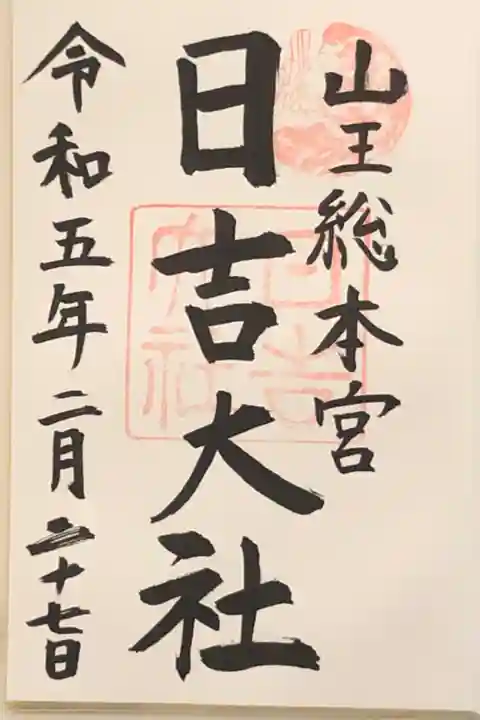 山王総本宮
日吉大社
令和五年二月二十七日
日吉大社